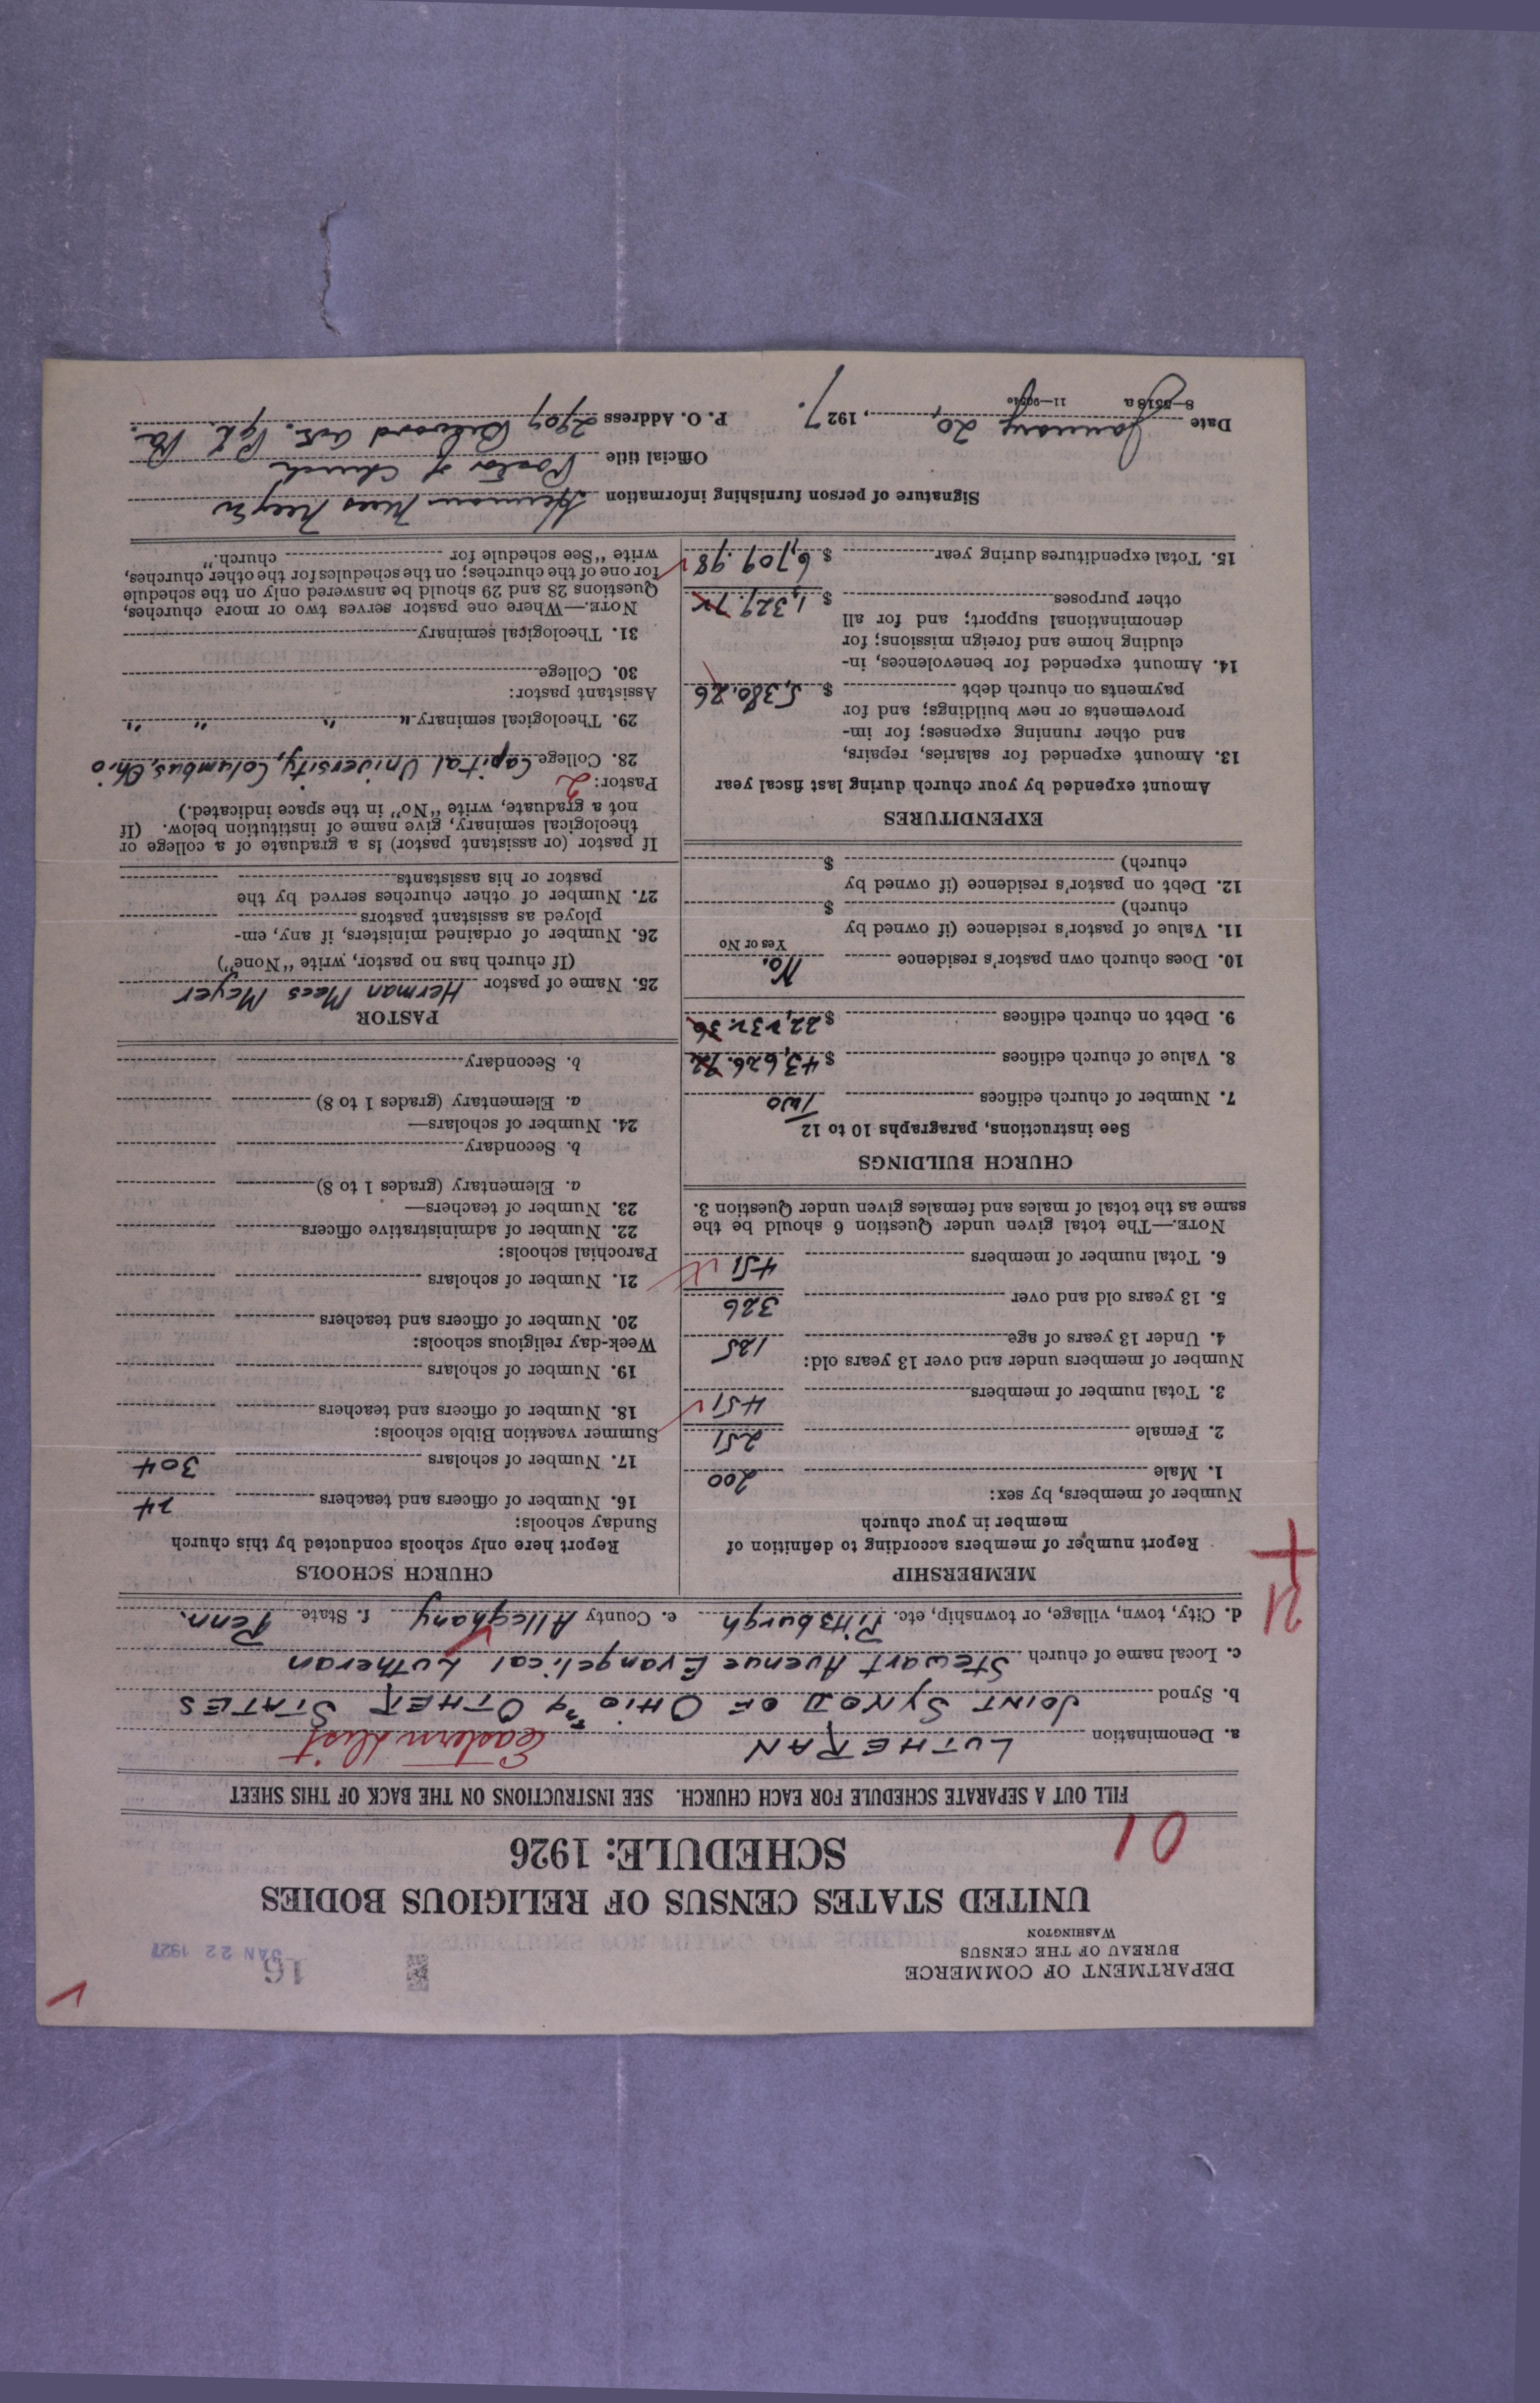 DEPARTMENT OF COMMERCE
BUREAU OF THE CENSUS
WASHINGTON
16
JAN 22 1927
UNITED STATES CENSUS OF RELIGIOUS BODIES
SCHEDULE: 1926
01
FILL OUT A SEPARATE SCHEDULE FOR EACH CHURCH. SEE INSTRUCTIONS ON THE BACK OF THIS SHEET
a. Denomination LUTHERAN Eastern Dist
b. Synod JOINT SYNOD OF OHIO & OTHER STATES
c. Local name of church Stewart Avenue Evangelical Lutheran
d. City, town, village, or township, etc. Pittsburgh e. County Alleghany f. State Penn.
MEMBERSHIP
Report number of members according to definition of
member in your church
Number of members, by sex:
1. Male 200
2. Female 251
3. Total number of members 451
Number of members under and over 13 years old:
4. Under 13 years of age 125
5. 13 years old and over 326
6. Total number of members 451
NOTE.—The total given under Question 6 should be the
same as the total of males and females given under Question 3.
CHURCH BUILDINGS
See instructions, paragraphs 10 to 12
7. Number of church edifices Two
8. Value of church edifices $ 43,626.72
9. Debt on church edifices $ 22,232.36
10. Does church own pastor's residence No.
Yes or No
11. Value of pastor's residence (if owned by
church) $
12. Debt on pastor's residence (if owned by
church) $
EXPENDITURES
Amount expended by your church during last fiscal year
13. Amount expended for salaries, repairs,
and other running expenses; for im-
provements or new buildings; and for
payments on church debt $ 5,380.26
14. Amount expended for benevolences, in-
cluding home and foreign missions; for
denominational support; and for all
other purposes $ 1,329.72
15. Total expenditures during year $ 6,709.98
CHURCH SCHOOLS
Report here only schools conducted by this church
Sunday schools:
16. Number of officers and teachers 24
17. Number of scholars 304
Summer vacation Bible schools:
18. Number of officers and teachers
19. Number of scholars
Week-day religious schools:
20. Number of officers and teachers
21. Number of scholars
Parochial schools:
22. Number of administrative officers
23. Number of teachers—
a. Elementary (grades 1 to 8)
b. Secondary
24. Number of scholars—
a. Elementary (grades 1 to 8)
b. Secondary
PASTOR
25. Name of pastor Herman Mees Meyer
(If church has no pastor, write "None")
26. Number of ordained ministers, if any, em-
ployed as assistant pastors
27. Number of other churches served by the
pastor or his assistants
If pastor (or assistant pastor) is a graduate of a college or
theological seminary, give name of institution below. (If
not a graduate, write "No" in the space indicated.)
Pastor: 2
28. College Capital University, Columbus, Ohio
29. Theological seminary " " " "
Assistant pastor:
30. College
31. Theological seminary
NOTE.—Where one pastor serves two or more churches,
Questions 28 and 29 should be answered only on the schedule
for one of the churches; on the schedules for the other churches,
write "See schedule for church."
Signature of person furnishing information Herman Mees Meyer
Official title Pastor of Church
Date January 20, 1927. P. O. Address 2909 Ave. Pgh. Pa.
8—5518a